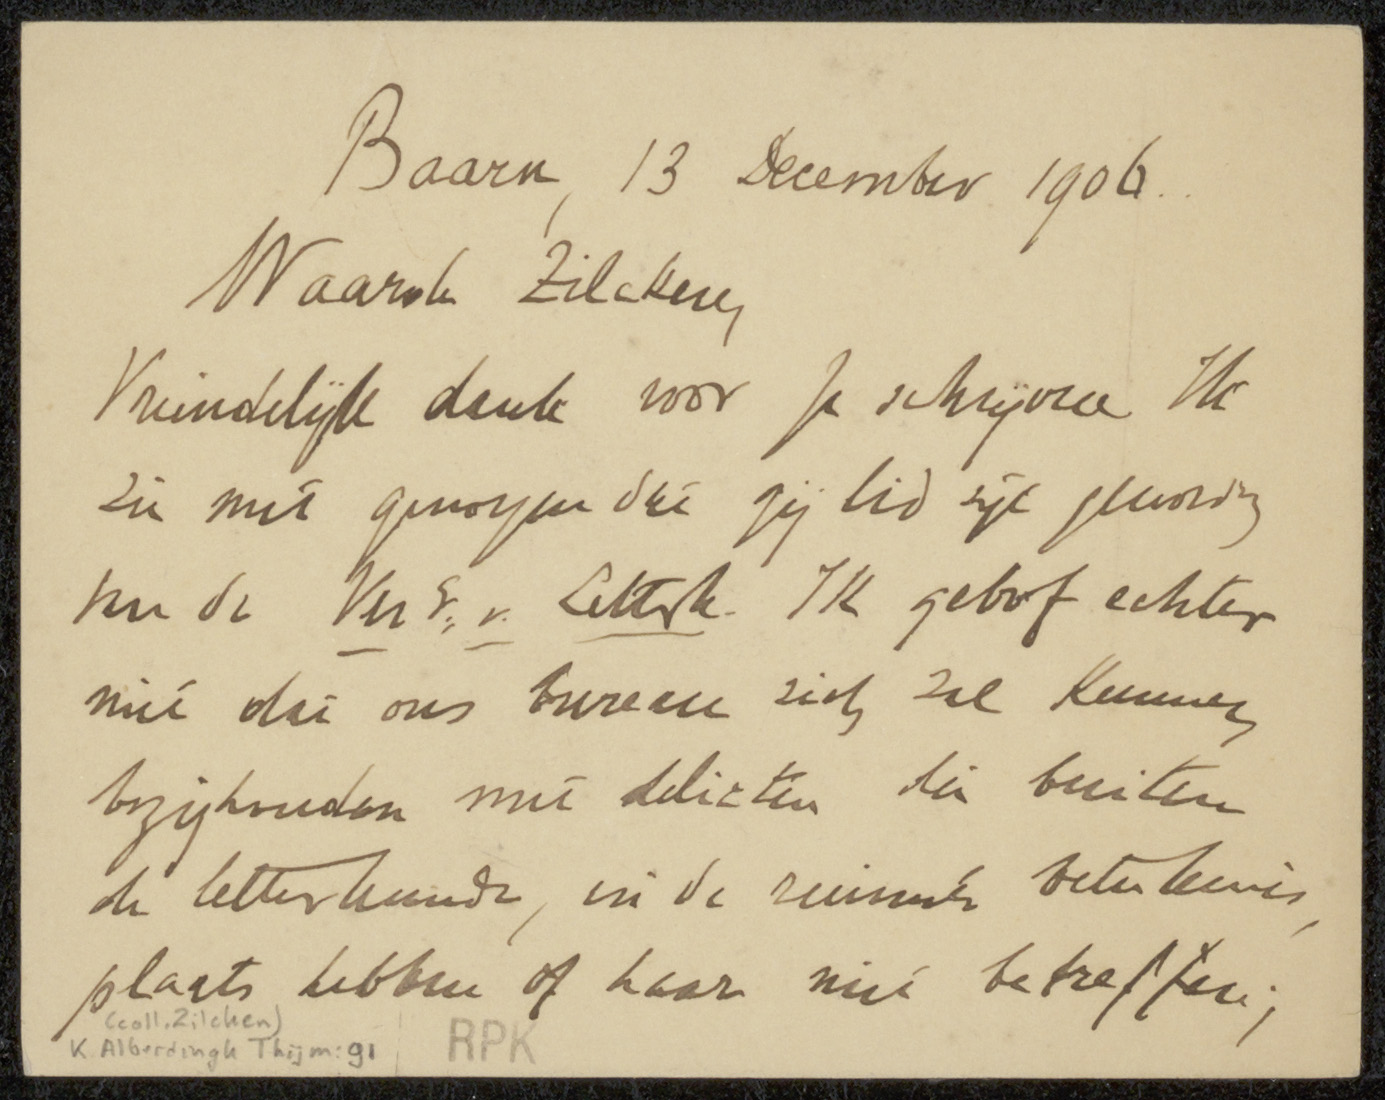 Baarn, 13 December 1906.
Waarde Zilcken,
Vriendelijk dank voor je schrijven. Ik
zie met genoegen dat gij lid zijt geworden
van de Ver. v. Letterk. Ik geloof echter
niet dat ons bureau zich zal kunnen
bezighouden met delicten die buiten
de letterkunde, in de ruimste beteekenis,
plaats hebben of haar niet betreffen;
(coll. Zilcken)
K. Alberdingk Thijm: 91
RPK